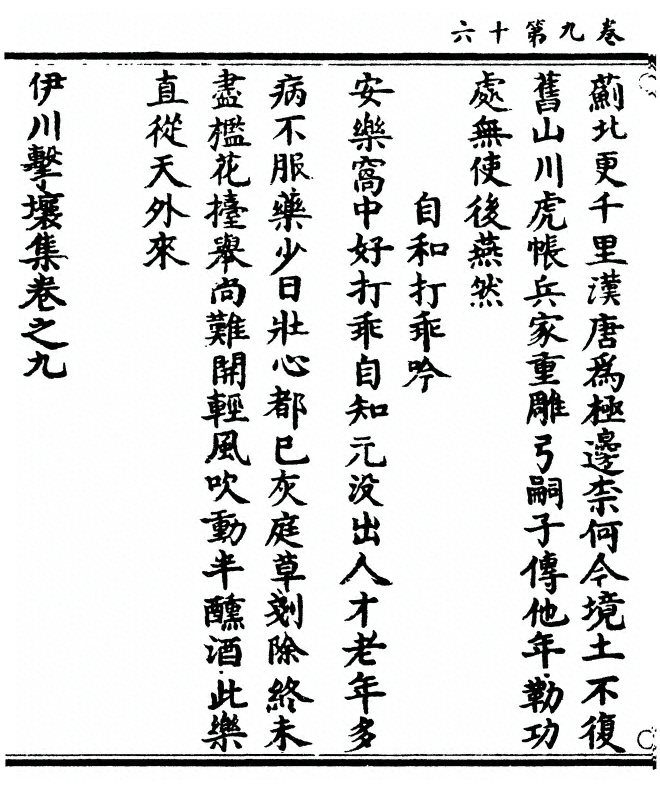 卷九第十六
薊北更千里漢唐為極邊柰何今境土不復
舊山川虎帳兵家重雕弓嗣子傳他年勒功
處無使後燕然
自和打乖吟
安樂窩中好打乖自知元没出人才老年多
病不服藥少日壯心都已灰庭草剗除終未
盡檻花擡舉尚難開輕風吹動半醺酒此樂
直從天外來
伊川擊壤集卷之九